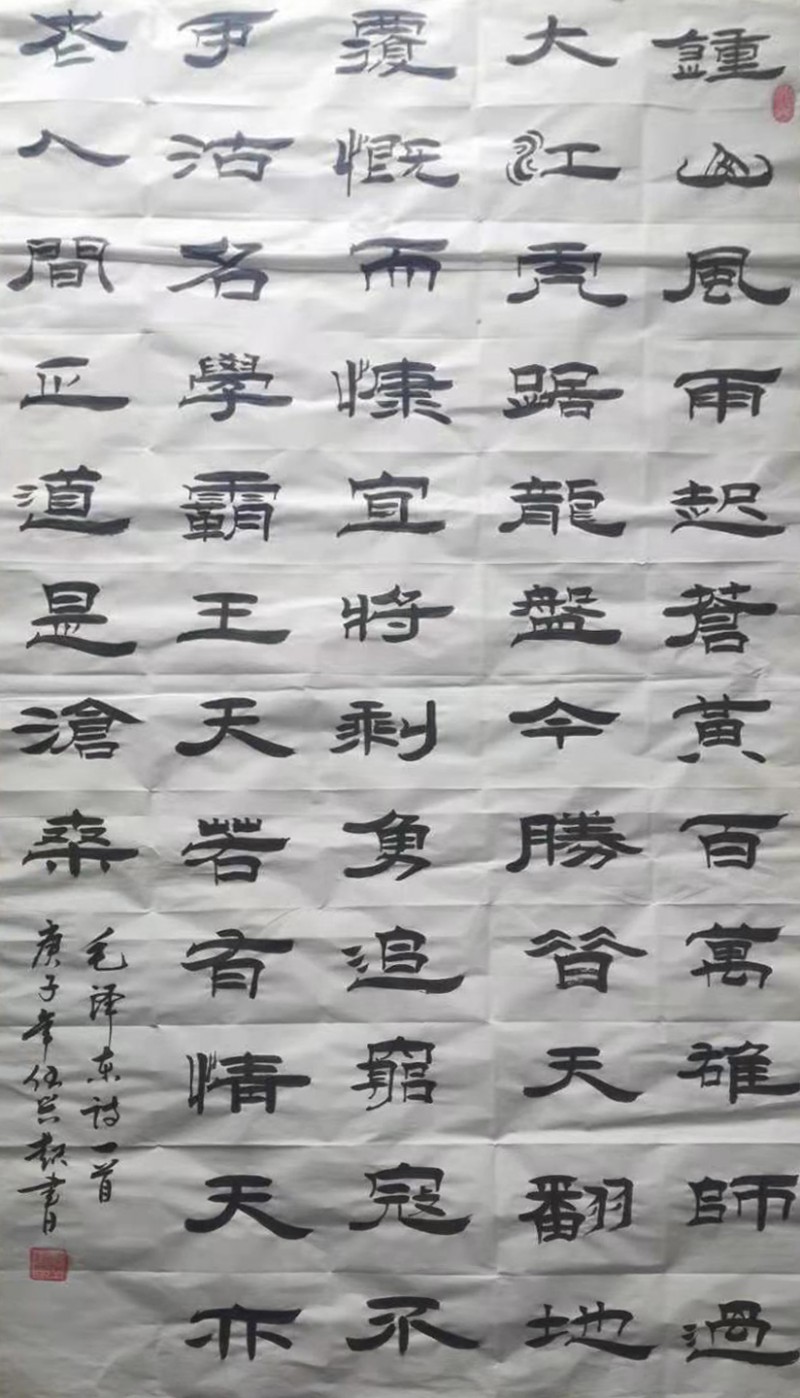 鍾山風雨起蒼黃百萬雄師過
大江虎踞龍盤今勝昔天翻地
覆慨而慷宜將剩勇追窮寇不
沽名學霸王天若有情天亦
老人間正道是滄桑
毛泽东诗一首
庚子年書